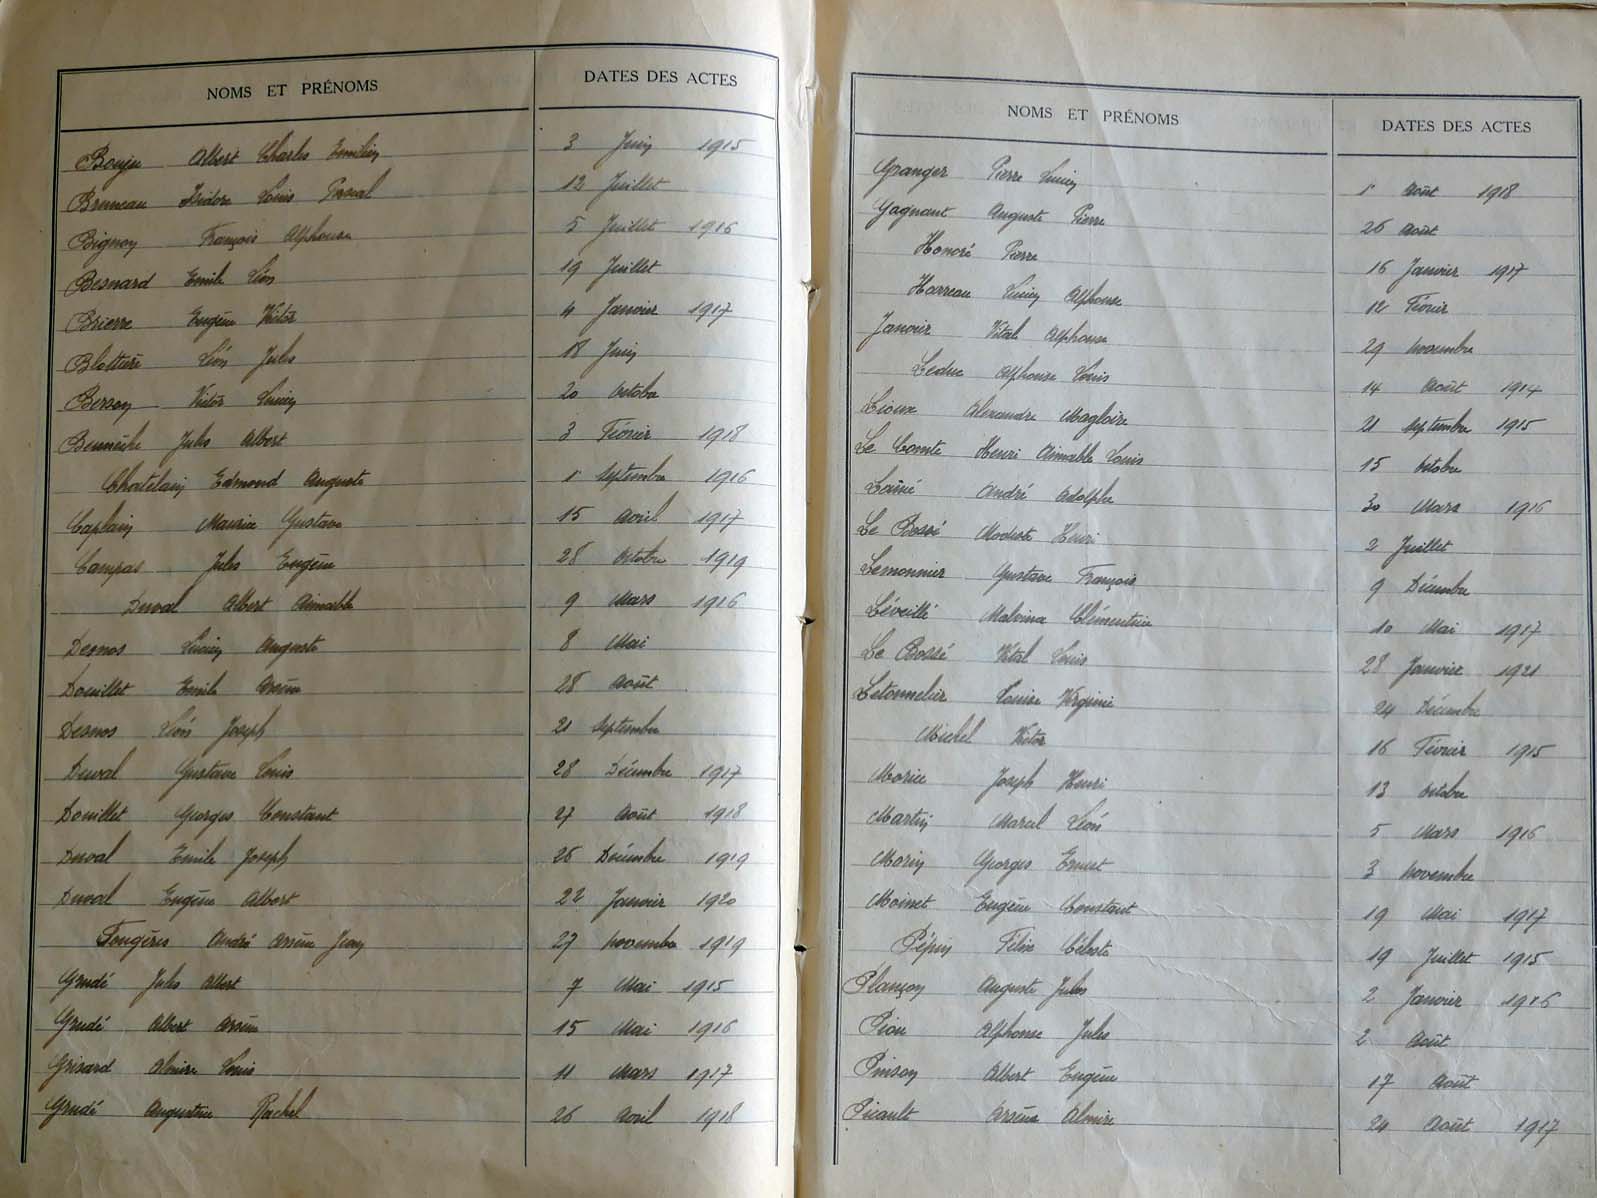 NOMS ET PRÉNOMS DATES DES ACTES
Bouju Albert Charles Emilien 3 Juin 1915
Bruneau Isidore Louis Pascal 12 Juillet
Bignon François Alphonse 5 Juillet 1916
Besnard Emile Léon 19 Juillet
Brierre Eugène Victor 4 Janvier 1917
Léon Jules 18 Juin
Berson Victor Lucien 20 Octobre
Jules Albert 3 Février 1918
Chatelain Edmond Auguste 1r Septembre 1916
Caplain Maurice Gustave 15 Avril 1917
Campas Jules Eugène 28 Octobre 1919
Duval Albert Aimable 9 Mars 1916
Desnos Lucien Auguste 8 Mai
Douillet Emile Arsène 28 Août
Desnos Léon Joseph 21 Septembre
Duval Gustave Louis 28 Décembre 1917
Douillet Georges Constant 27 Août 1918
Duval Emile Joseph 26 Décembre 1919
Duval Eugène Albert 22 Janvier 1920
Fougères André Arsène Jean 27 Novembre 1919
Grudé Jules Albert 7 Mai 1915
Grudé Albert Arsène 15 Mai 1916
Grisard Almire Louis 11 Mars 1917
Grudé Augustine Rachel 26 Avril 1918
NOMS ET PRÉNOMS DATES DES ACTES
Granger Pierre Lucien 1r Août 1918
Gagnant Auguste Pierre 26 Août
Honoré Pierre 16 Janvier 1917
Harreau Lucien Alphonse 12 Février
Janvier Vital Alphonse 29 Novembre
Leduc Alphonse Louis 14 Août 1914
Lioux Alexandre Magloire 21 Septembre 1915
Le Comte Henri Aimable Louis 15 Octobre
Lainé André Adolphe 30 Mars 1916
Le Bossé Modeste Henri 2 Juillet
Lemonnier Gustave François 9 Décembre
Léveillé Malvina Clémentine 10 Mai 1917
Le Bossé Vital Louis 28 Janvier 1921
Letonnelier Louise Virginie 24 Décembre
Michel Victor 16 Février 1915
Morice Joseph Henri 13 Octobre
Martin Marcel Léon 5 Mars 1916
Morin Georges Ernest 3 Novembre
Moinet Eugène Constant 19 Mai 1917
Pépin Félix Céleste 19 Juillet 1915
Plançon Auguste Jules 2 Janvier 1916
Piou Alphonse Jules 2 Août
Pinson Albert Eugène 17 Août
Picault Arsène Almire 24 Août 1917